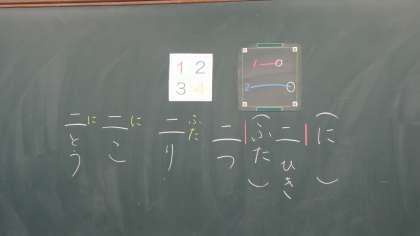 1 2
3 4
1 0
2 0
(に)
二ひき
(ふた)
二つ
ふた
二り
に
二こ
に
二とう